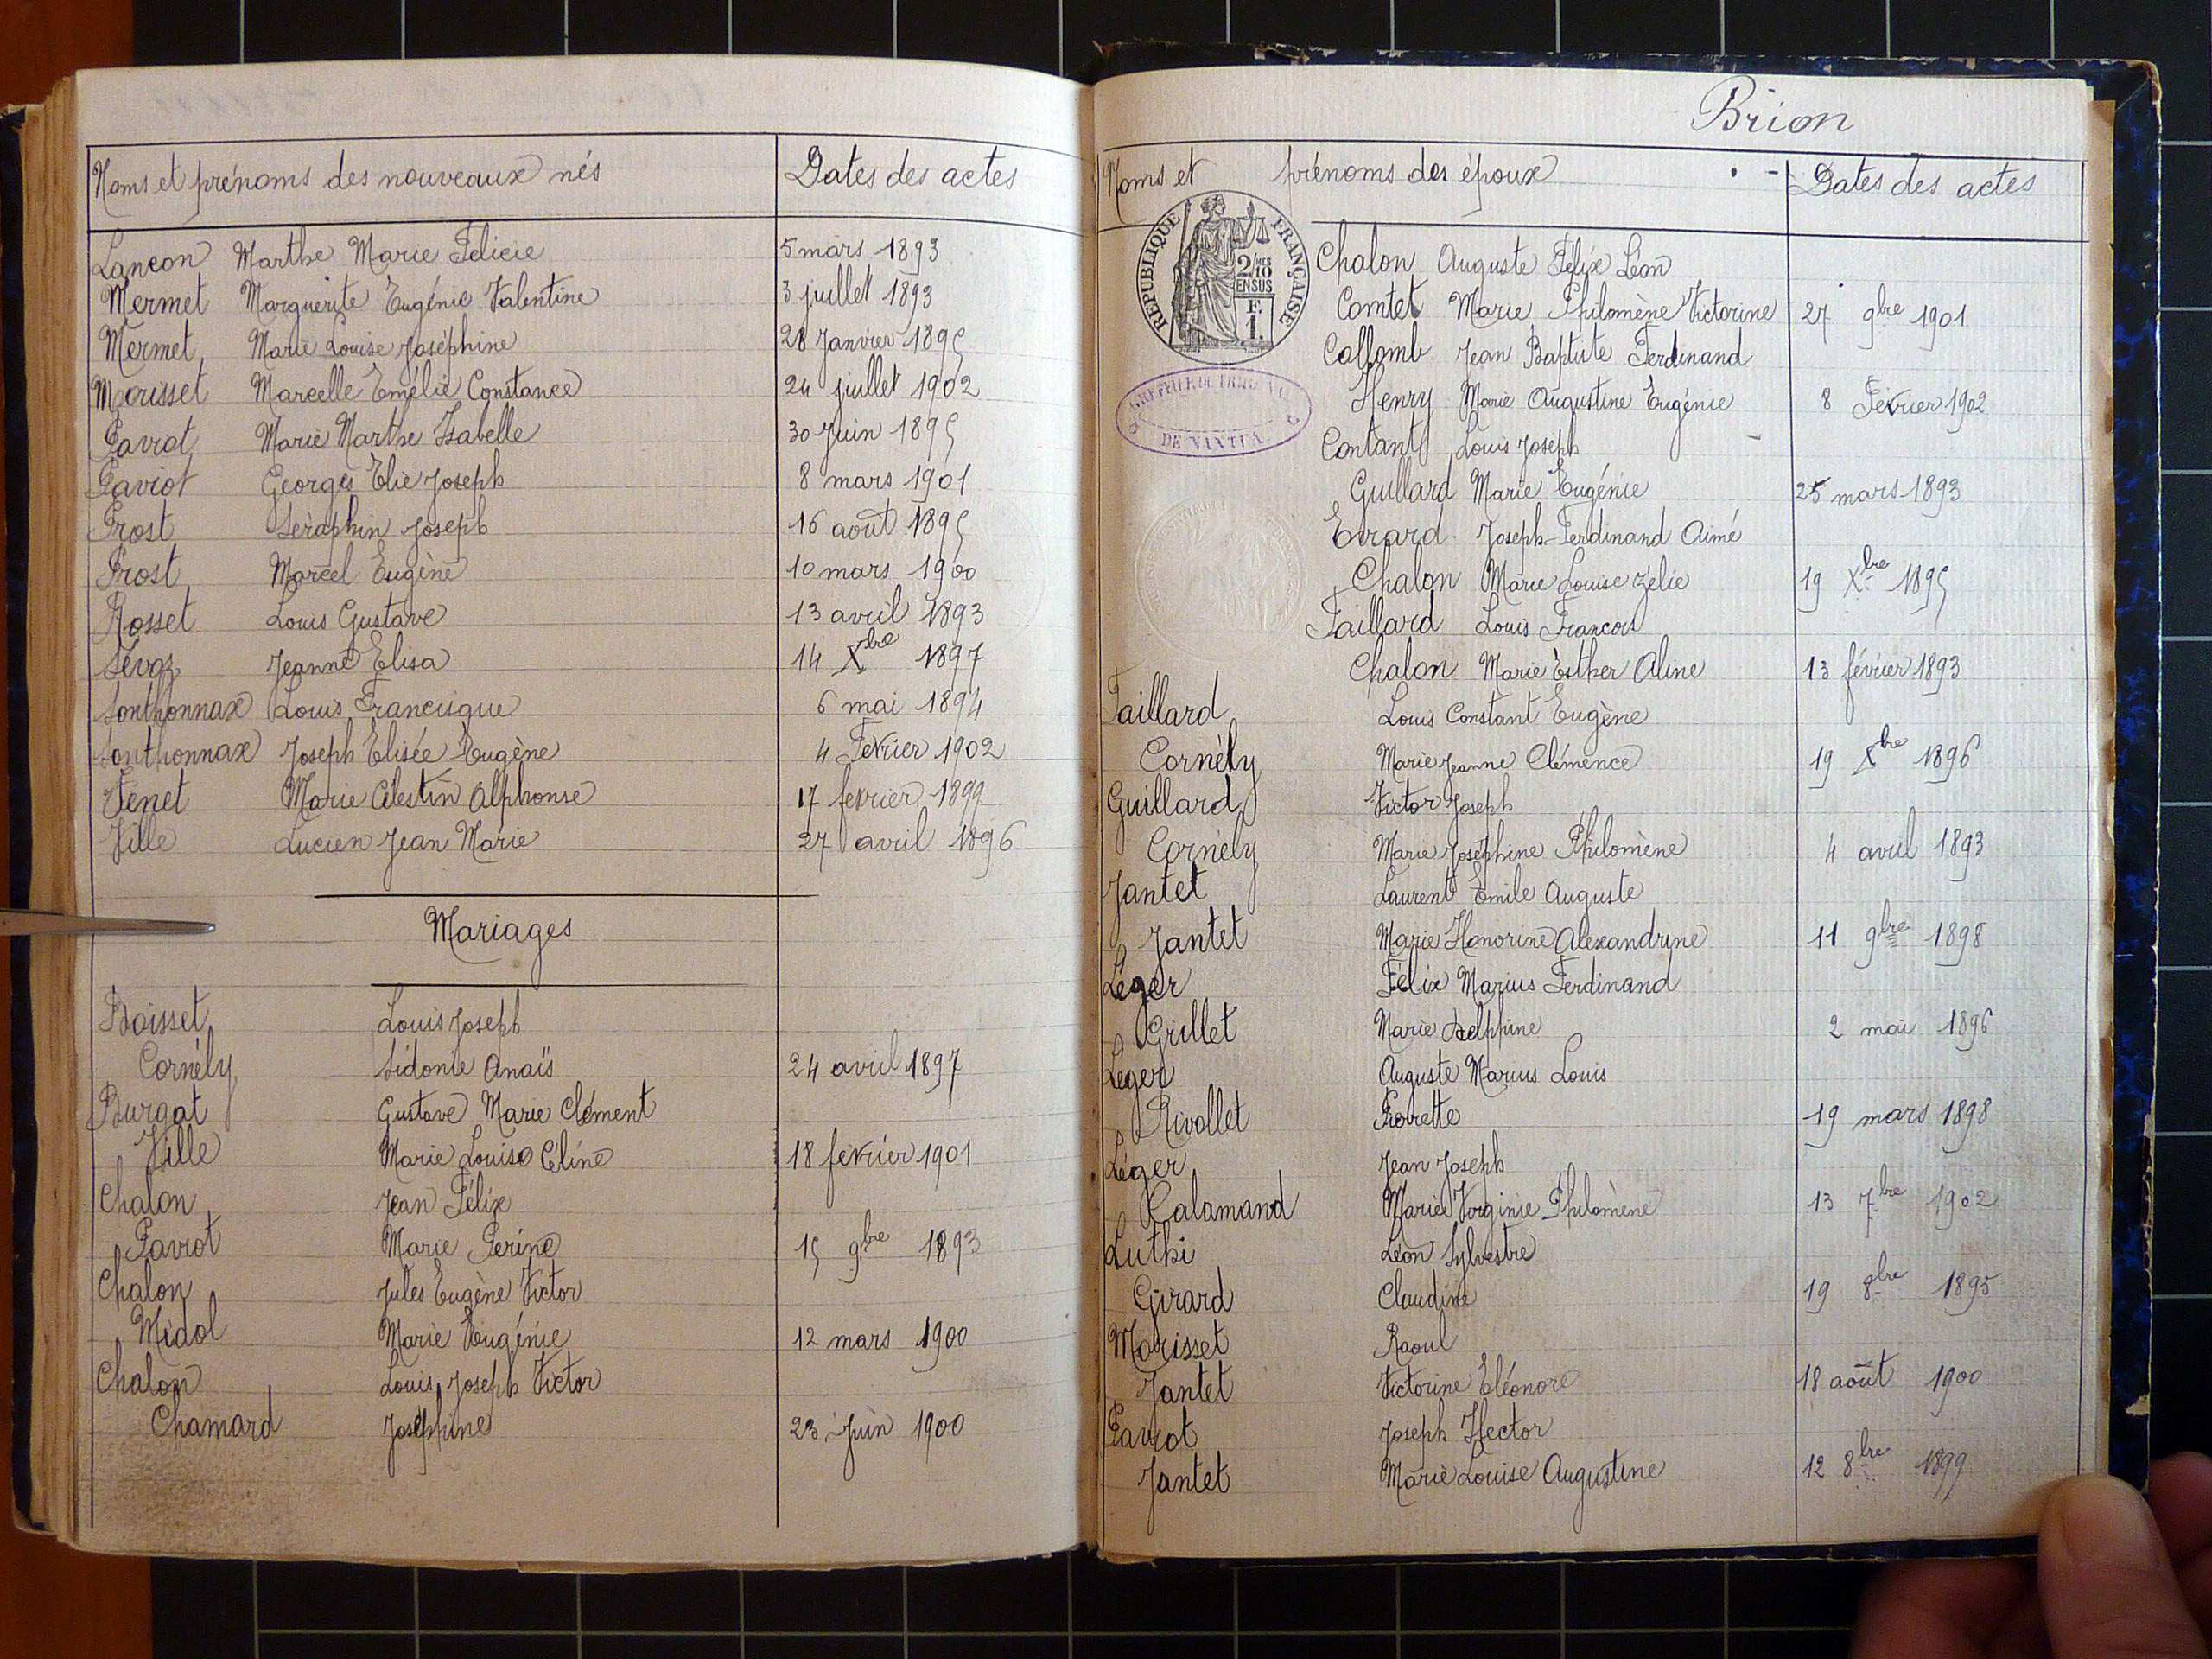 Noms et prénoms des nouveaux nés Dates des actes
Lançon Marthe Marie Félicie 5 mars 1893
Mermet Marguerite Eugénie Valentine 3 juillet 1893
Mermet Marie Louise Joséphine 28 Janvier 1895
Morisset Marcelle Emélie Constance 24 juillet 1902
Paviot Marie Marthe Isabelle 30 Juin 1895
Paviot Georges Elie Joseph 8 mars 1901
Prost Séraphin Joseph 16 août 1895
Prost Marcel Eugène 10 mars 1900
Rosset Louis Gustave 13 avril 1893
Sévoz Jeanne Elisa 14 Xbre 1897
Sonthonnax Louis Francisque 6 mai 1894
Sonthonnax Joseph Elisée Eugène 4 Février 1902
Venet Marie Célestin Alphonse 17 février 1899
Ville Lucien Jean Marie 27 avril 1896
Mariages
Boisset Louis Joseph
Cornély Sidonie Anaïs 24 avril 1897
Burgat Gustave Marie Clément
Ville Marie Louise Céline 18 février 1901
Chalon Jean Félix
Paviot Marie Périne 15 9bre 1893
Chalon Jules Eugène Victor
Midol Marie Eugénie 12 mars 1900
Chalon Louis Joseph Victor
Chamard Joséphine 23 Juin 1900
Brion
Noms et prénoms des époux Dates des actes
RÉPUBLIQUE FRANÇAISE
2/10 MES
EN SUS
F.
1.
DE NANTUA
Chalon Auguste Félix Léon
Comtet Marie Philomène Victorine 27 9bre 1901
Collomb Jean Baptiste Ferdinand
Henry Marie Augustine Eugénie 8 Février 1902
Contant Louis Joseph
Guillard Marie Eugénie 25 mars 1893
Evrard Joseph-Ferdinand Aimé
Chalon Marie Louise Zélie 19 Xbre 1895
Faillard Louis François
Chalon Marie Esther Aline 13 février 1893
Faillard Louis Constant Eugène
Cornély Marie Jeanne Clémence 19 Xbre 1896
Guillard Victor Joseph
Cornély Marie Joséphine Philomène 4 avril 1893
Jantet Laurent Emile Auguste
Jantet Marie Honorine Alexandrine 11 9bre 1898
Léger Félix Marius Ferdinand
Grillet Marie Delphine 2 mai 1896
Léger Auguste Marius Louis
Rivollet 19 mars 1898
Léger Jean Joseph
Calamand Marie Virginie Philomène 13 7bre 1902
Luthi Léon Sylvestre
Girard Claudine 19 8bre 1895
Morisset Raoul
Jantet Victorine Eléonore 18 août 1900
Paviot Joseph Hector
Jantet Marie Louise Augustine 12 8bre 1899